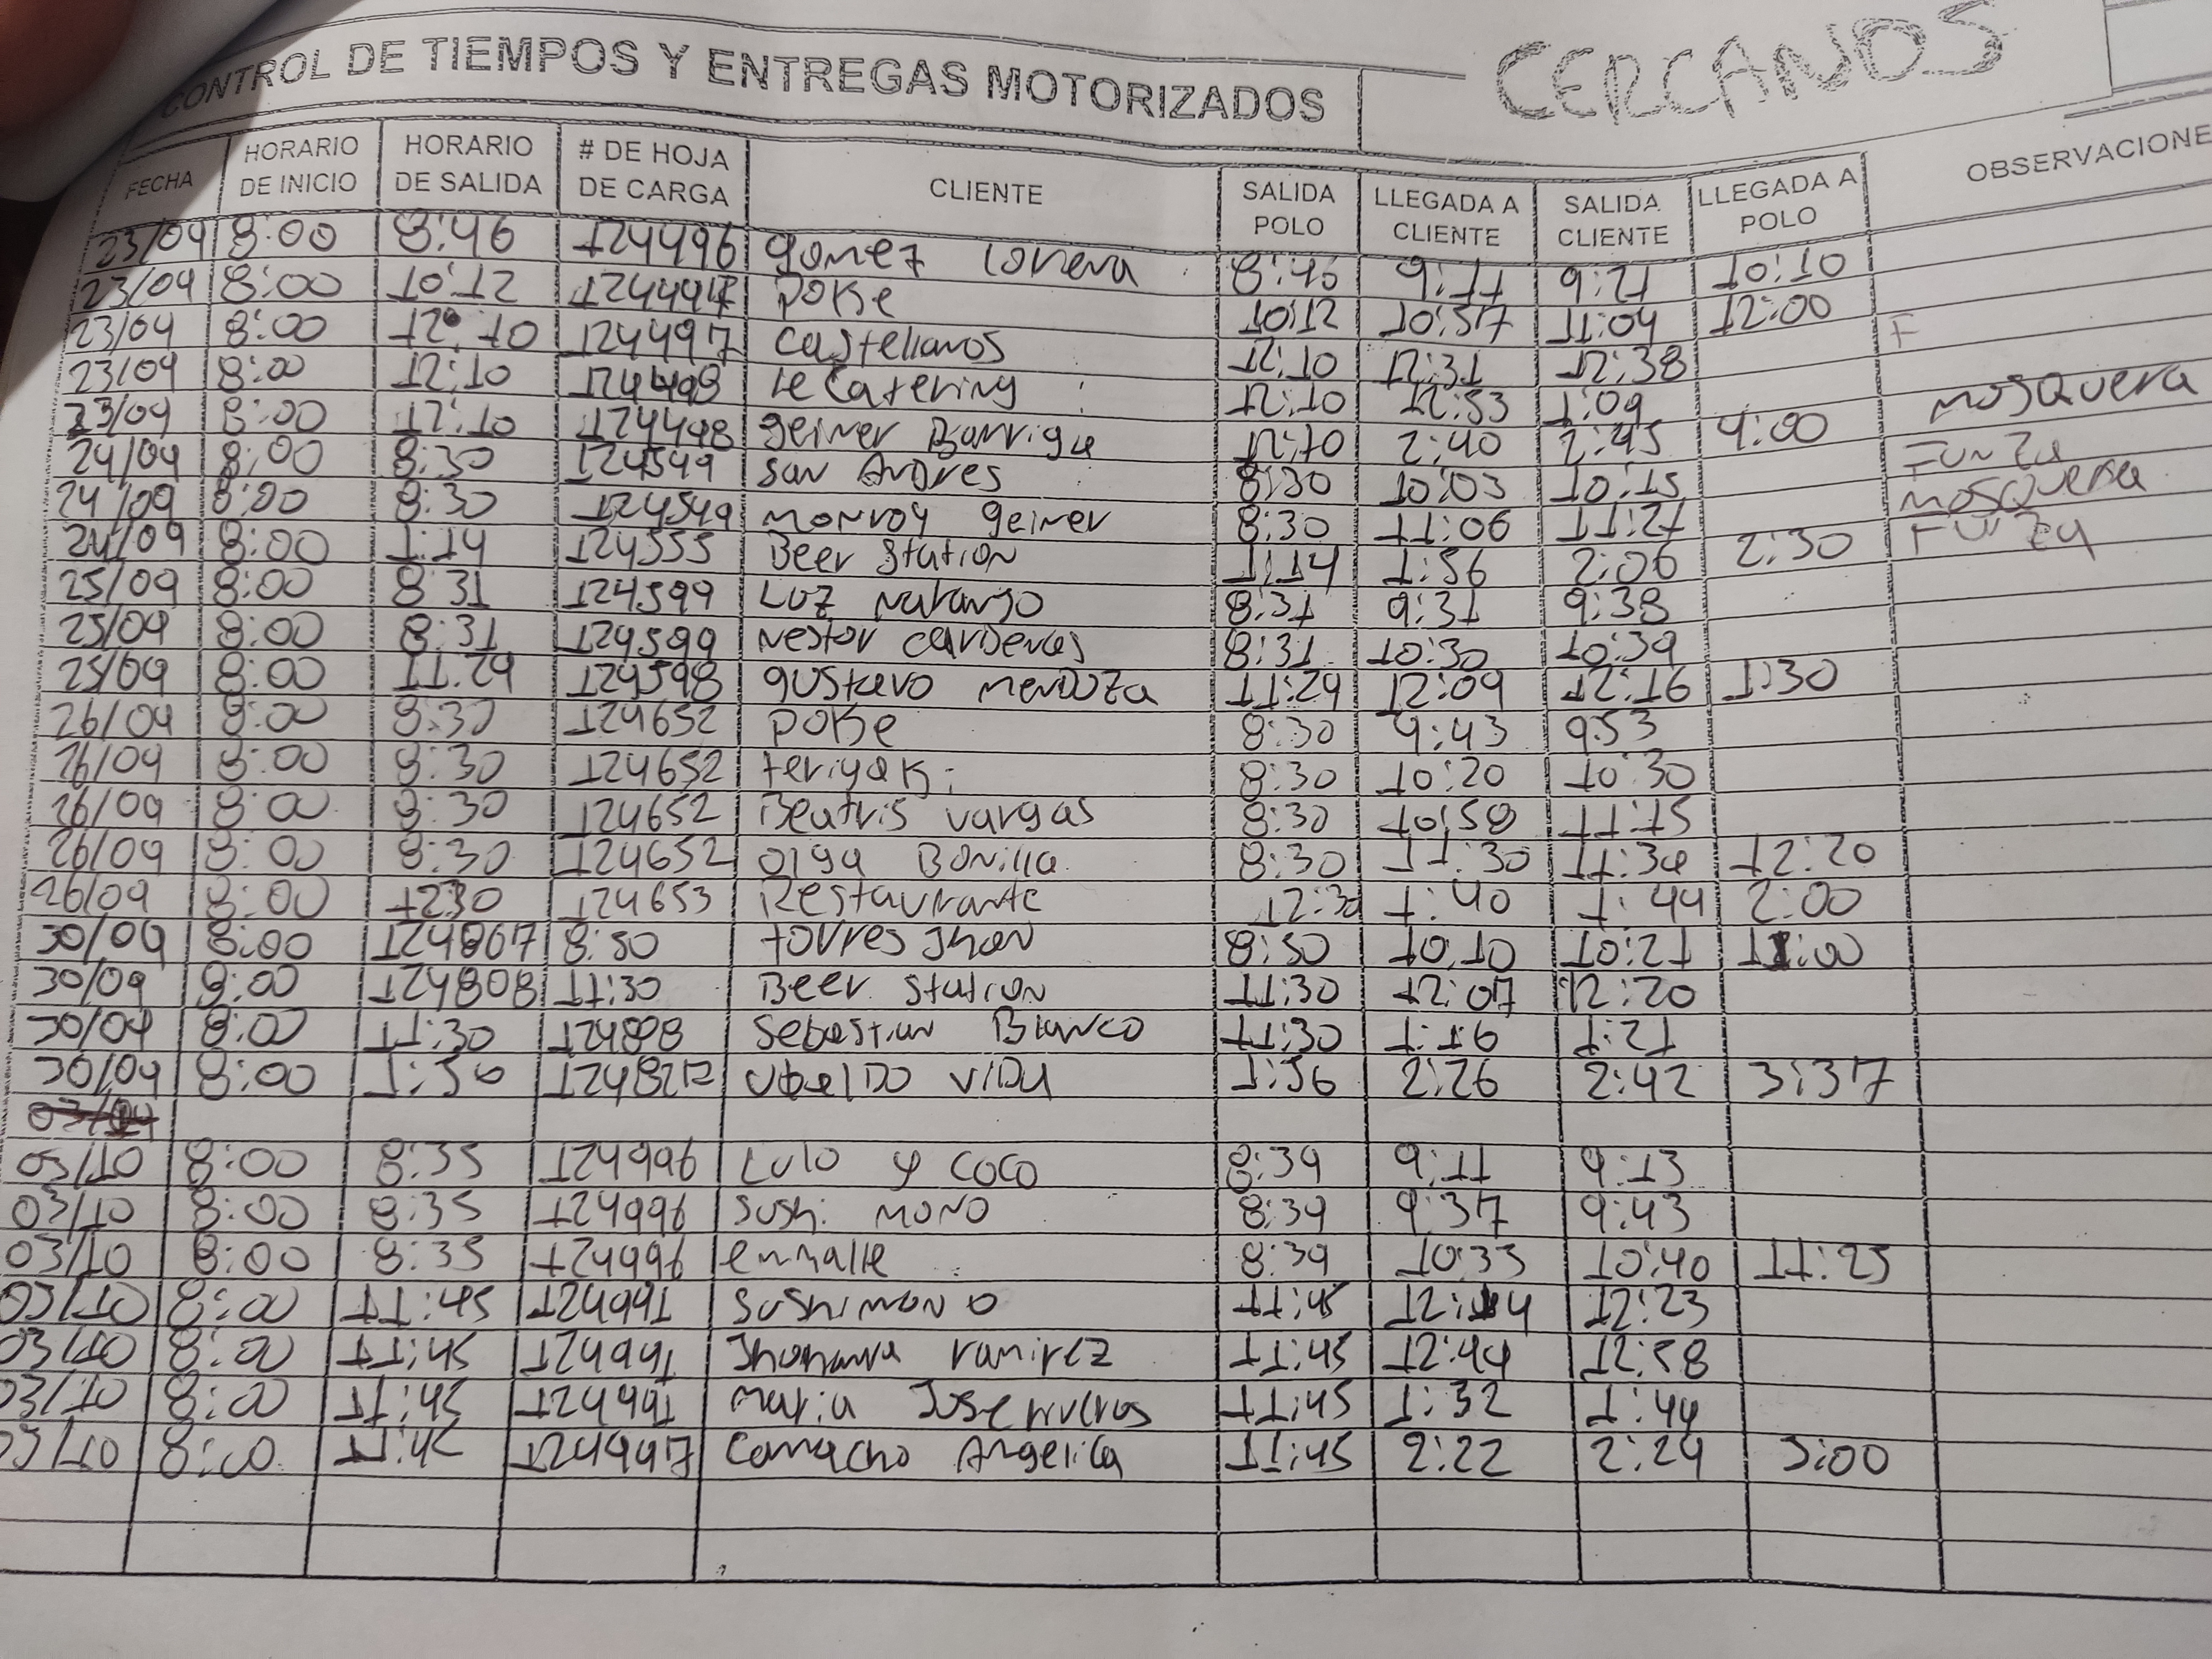 CONTROL DE TIEMPOS Y ENTREGAS MOTORIZADOS CERCANOS
FECHA HORARIO DE INICIO HORARIO DE SALIDA # DE HOJA DE CARGA CLIENTE SALIDA POLO LLEGADA A CLIENTE SALIDA CLIENTE LLEGADA A POLO OBSERVACIONE
23/09 8:00 8:46 124496 gomez lorena 8:46 9:11 9:21 10:10
23/09 8:00 10:12 124497 POKE 10:12 10:57 11:04 12:00
23/09 8:00 12:10 124497 Castellanos 12:10 12:31 12:38 F
23/09 8:00 12:10 124498 le Catering 12:10 12:53 1:09
23/09 8:00 12:10 124498 geiner Barriga 12:10 2:40 2:45 4:00 MOSQUERA
24/09 8:00 8:30 124549 San Andres 8:30 10:03 10:15 Funza
24/09 8:00 8:30 124549 monroy geiner 8:30 11:06 11:21 MOSQUERA
24/09 8:00 1:14 124555 Beer Station 1:14 1:56 2:06 2:30 Funza
25/09 8:00 8:31 124599 LUZ naranjo 8:31 9:31 9:38
25/09 8:00 8:31 124599 Nestor cardenas 8:31 10:30 10:39
25/09 8:00 11:29 124598 gustavo mendoza 11:29 12:09 12:16 1:30
26/09 8:00 8:30 124652 POKE 8:30 9:43 9:53
26/09 8:00 8:30 124652 teriyaki 8:30 10:20 10:30
26/09 8:00 8:30 124652 Beatris vargas 8:30 10:58 11:15
26/09 8:00 8:30 124652 olga Bonilla 8:30 11:30 11:34 12:20
26/09 8:00 12:30 124653 Restaurante 12:30 1:40 1:44 2:00
30/09 8:00 124867 8:50 torres Jhon 8:50 10:10 10:21 11:00
30/09 8:00 124808 11:30 Beer station 11:30 12:07 12:20
30/09 8:00 11:30 124808 Sebastian Blanco 11:30 1:16 1:21
30/09 8:00 1:56 VIDU 1:56 2:26 2:42 3:37
03/10 8:00 8:35 124996 Lulo y coco 8:39 9:11 9:13
03/10 8:00 8:35 124996 Sushi MONO 8:39 9:37 9:43
03/10 8:00 8:35 124996 enmalle 8:39 10:33 10:40 11:25
03/10 8:00 11:45 124997 Sushi mono 11:45 12:14 12:23
03/10 8:00 11:45 124997 Jhohanna ramirez 11:45 12:44 12:58
03/10 8:00 11:45 124997 maria Jose 11:45 1:32 1:44
03/10 8:00 11:45 124997 Camacho Angelica 11:45 2:22 2:29 3:00